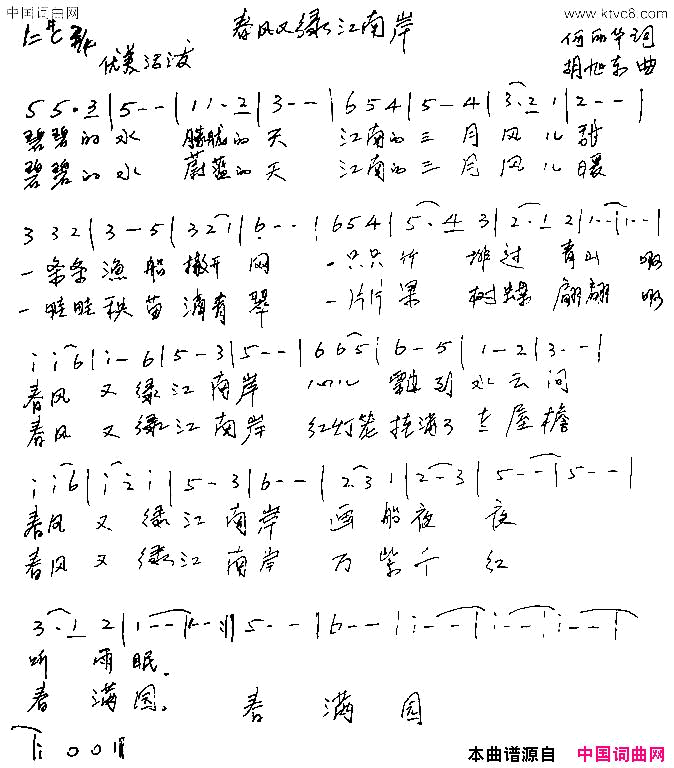 中国词曲网
www.ktvc8.com
春风又绿江南岸
优美 活泼
何丽华 词
胡旭东 曲
5 5· 3 | 5 - - | 1 1· 2 | 3 - - | 6 5 4 | 5 - 4 | 3· 2 1 | 2 - - |
碧碧的水 朦胧的天 江南的三月风儿甜
碧碧的水 蔚蓝的天 江南的三月风儿暖
3 3 2 | 3 - 5 | 3 2 1 | 6 - - | 6 5 4 | 5· 4 3 | 2· 1 2 | 1 - - | 1 - - |
一条条渔船撒开网 一只只竹排过青山啊
一畦畦秧苗滴着翠 一片片果树蝶翩翩啊
i i 6 | i - 6 | 5 - 3 | 5 - - | 6 6 5 | 6 - 5 | 1 - 2 | 3 - - |
春风又绿江南岸 飘到水云间
春风又绿江南岸 红灯笼挂满了在屋檐
i i 6 | i 2 i | 5 - 3 | 6 - - | 2 3 1 | 2 - 3 | 5 - - | 5 - - |
春风又绿江南岸 画船夜夜
春风又绿江南岸 万紫千红
3· 1 2 | 1 - - | 1 - - || 5 - - | 6 - - | i - - | i - - | i - - |
听雨眠.
春满园。 春满园
i 0 0 ||
本曲谱源自 中国词曲网